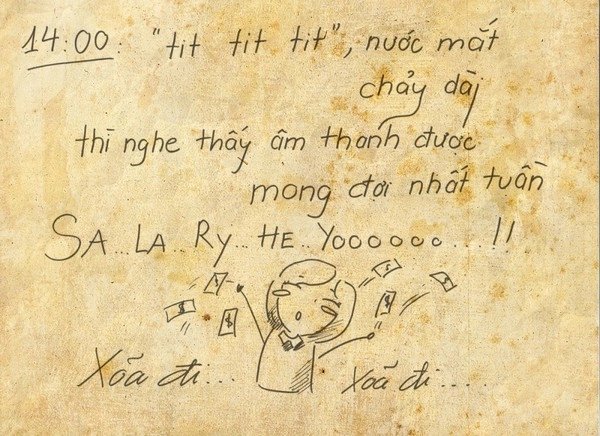 14:00: "tit tit tit", nước mắt
chảy dài
thì nghe thấy âm thanh được
mong đợi nhất tuần
SA...LA...RY...HE...YOOOOOO....!!
$ $ $ $ $ $
Xoã đi... Xoã đi....